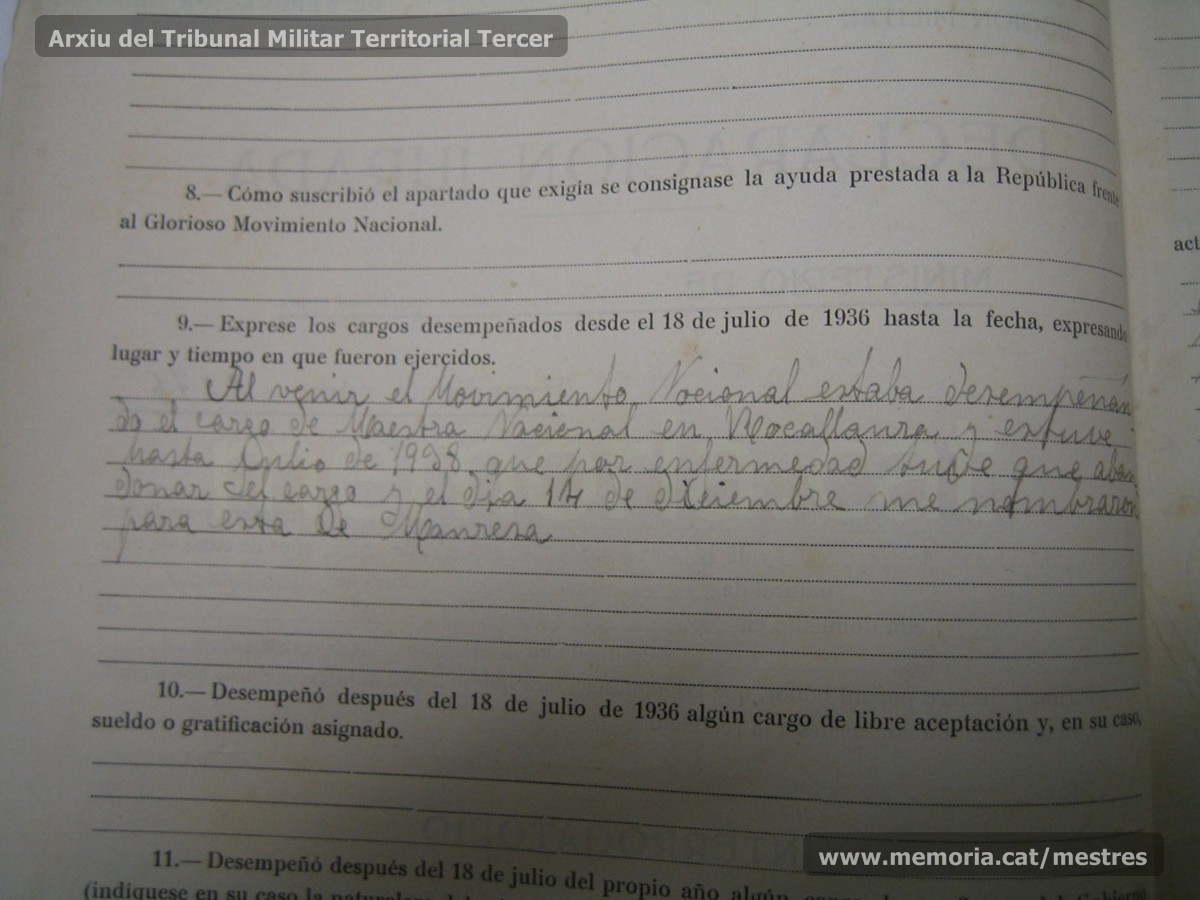 Arxiu del Tribunal Militar Territorial Tercer
8.— Cómo suscribió el apartado que exigía se consignase la ayuda prestada a la República frente
al Glorioso Movimiento Nacional.
9.— Exprese los cargos desempeñados desde el 18 de julio de 1936 hasta la fecha, expresando
lugar y tiempo en que fueron ejercidos.
Al venir el Movimiento Nacional estaba desempeñán
do el cargo de Maestra Nacional en Rocafllaura y estuve
hasta Julio de 1938 que por enfermedad tuve que aban
donar el cargo y el dia 14 de diciembre me nombraron
para esta de Manresa
10.— Desempeñó después del 18 de julio de 1936 algún cargo de libre aceptación y, en su caso,
sueldo o gratificación asignado.
11.— Desempeñó después del 18 de julio del propio año algún
(indíquese en su caso la
Gobierno
act
www.memoria.cat/mestres